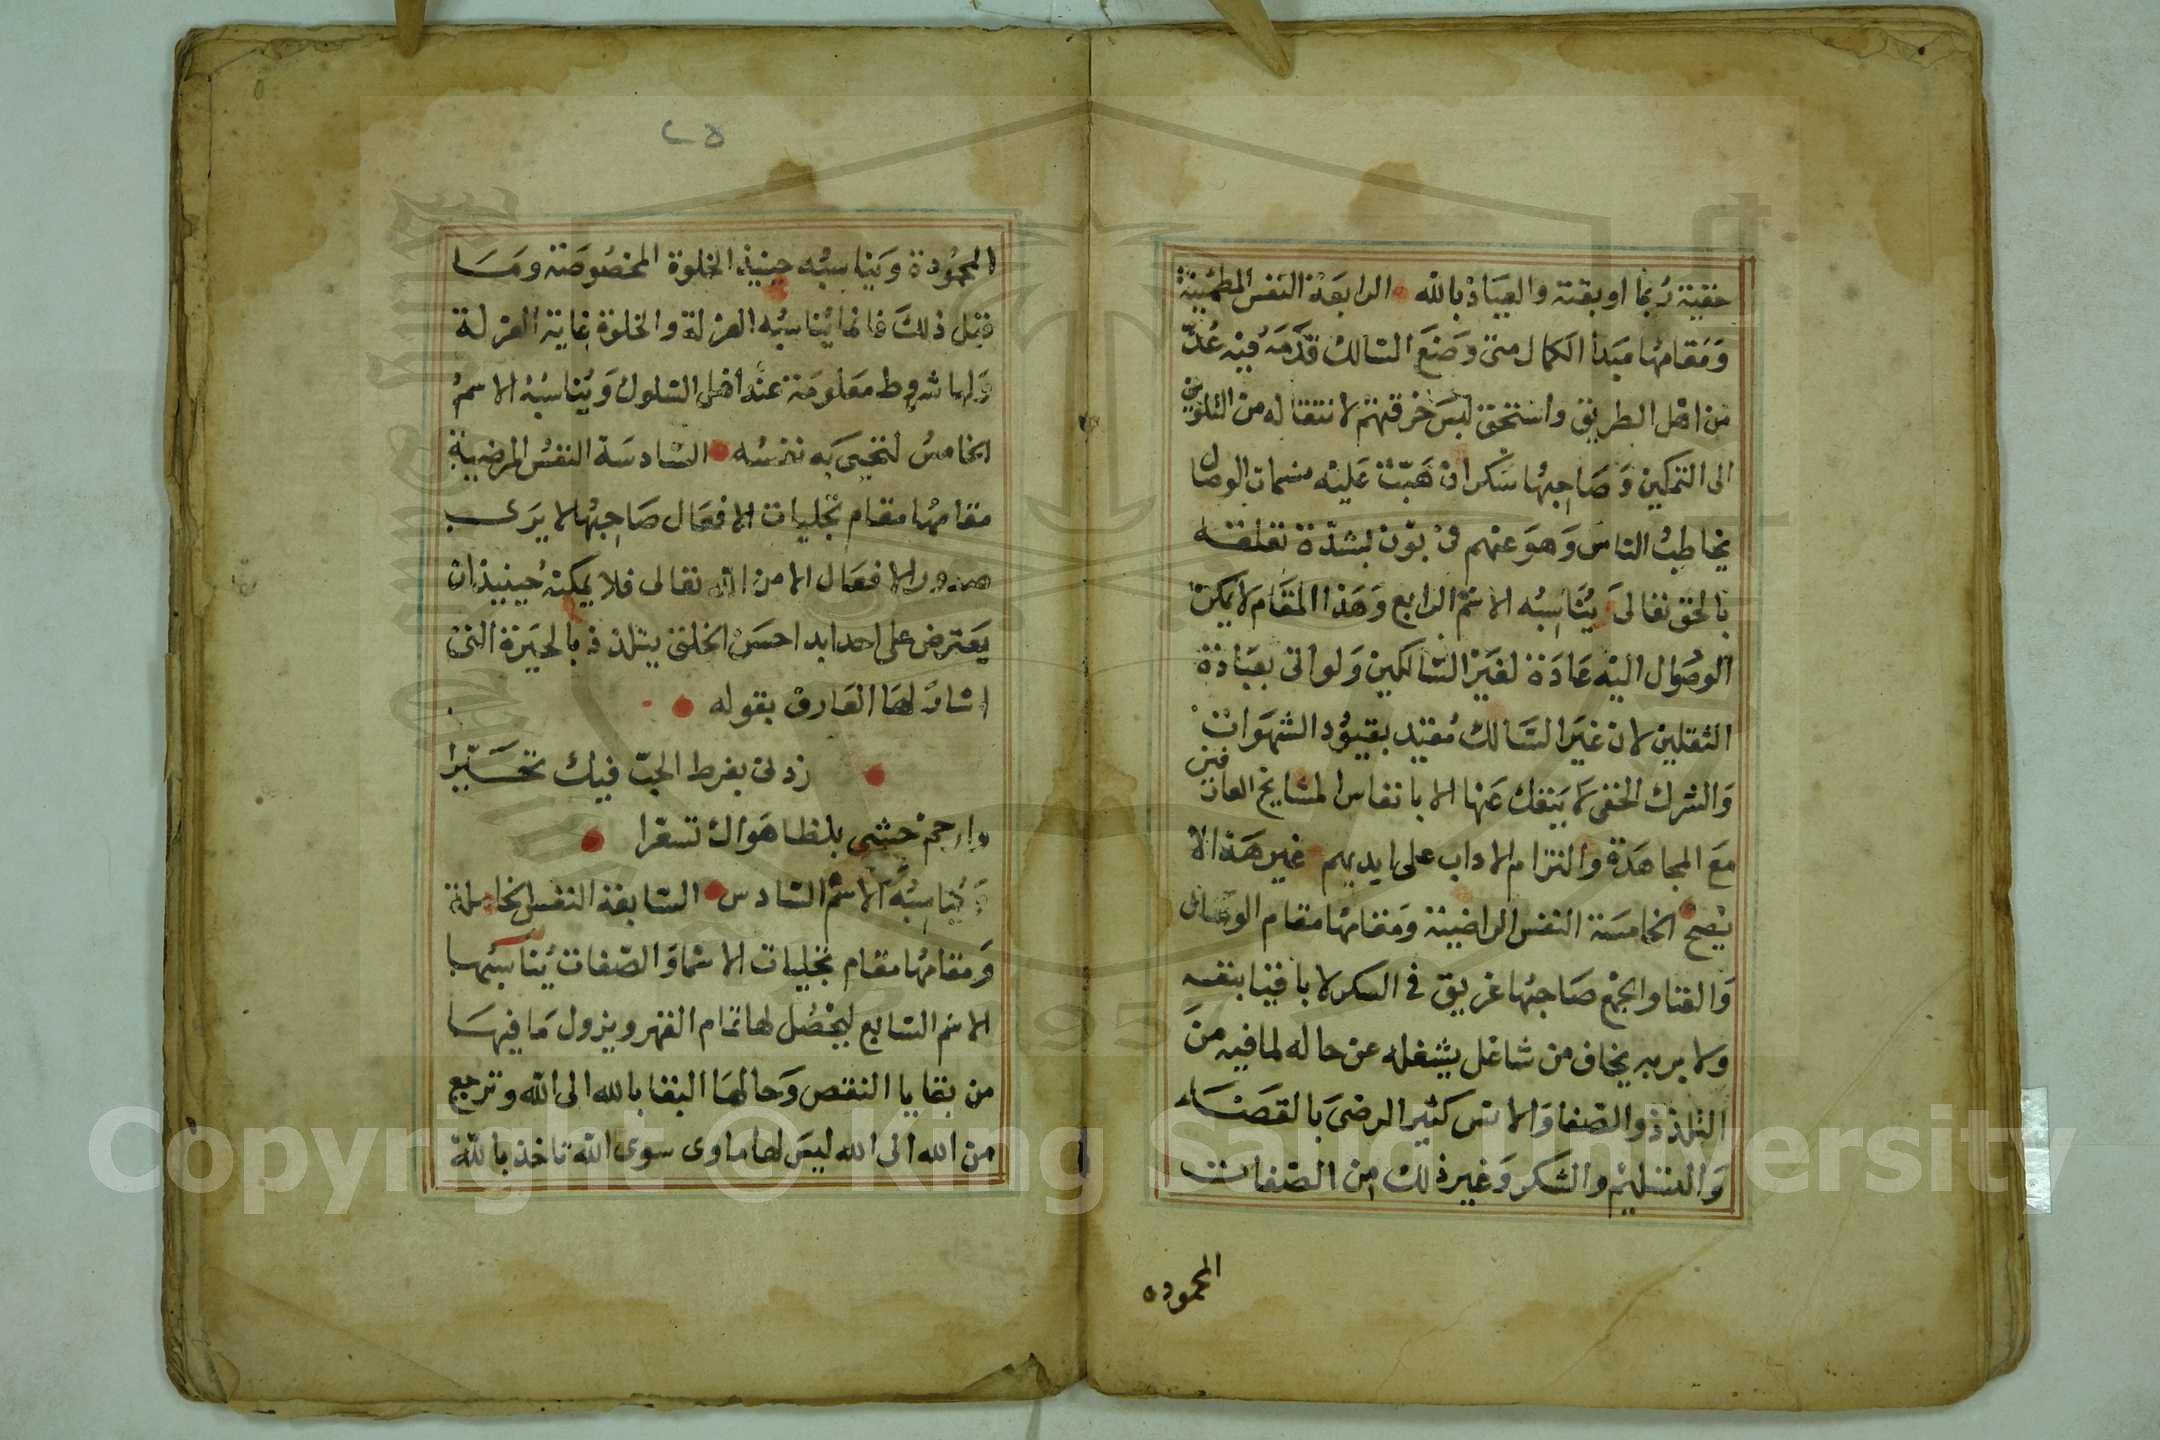 خفية ربما اوبقته والعياذ بالله الرابعة النفس المطمئنة
ومقامها مبدأ الكمال متى وضع السالك قدمه فيه عُدّ
من اهل الطريق واستحق لبس خرقتهم لانتقاله من التلوين
الى التمكين وصاحبها سكران هبّت عليه نسمات الوصال
يخاطب الناس وهو عنهم في بون لشدّة تعلقه
بالحق تعالى يناسبه الاسم الرابع وهذا المقام لا يمكن
الوصول اليه عادة لغير السالكين ولو اتى بعبادة
الثقلين لان غير السالك مقيد بقيود الشهوات
والشرك الخفي لا ينفك عنها الا بانفاس المشايخ العارفين
مع المجاهدة والتزام الاداب على ايديهم غير هذا لا
يصح الخامسة النفس الراضية ومقامها مقام الوصال
والفنا والجمع صاحبها غريق في السكر لا باقيا بنفسه
ولا بربه يخاف من شاغل يشغله عن حاله لما فيه من
التلذذ والصفا والانس كثير الرضى بالقضاء
والتسليم والشكر وغير ذلك من الصفات
المحموده
٢٥
المحمودة ويناسبه حينيذ الخلوة المخصوصة وما
قبل ذلك فانما يناسبه العزلة والخلوة غاية العزلة
ولها شروط معلومة عند اهل السلوك ويناسبه الاسم
الخامس لتحيى به نفسه السادسة النفس المرضية
مقامها مقام تجليات الافعال صاحبها لا يرى
صدور الافعال الا من الله تعالى فلا يمكنه حينيذ ان
يعترض على احد ابد احسن الخلق يتلذذ بالحيرة التي
اشار لها العارف بقوله
زدني بفرط الحبّ فيك تحيّرا
وارحم حشى بلظا هواك تسعرا
ويناسبه الاسم السادس السابعة النفس الكاملة
ومقامها مقام تجليات الاسما والصفات يناسبها
الاسم السابع ليحصل لها تمام القهر ويزول ما فيها
من بقايا النقص وحالها البقا بالله الى الله وترجع
من الله الى الله ليس لها ماوى سوى الله تاخذ بالله
Copyright © King Saud University